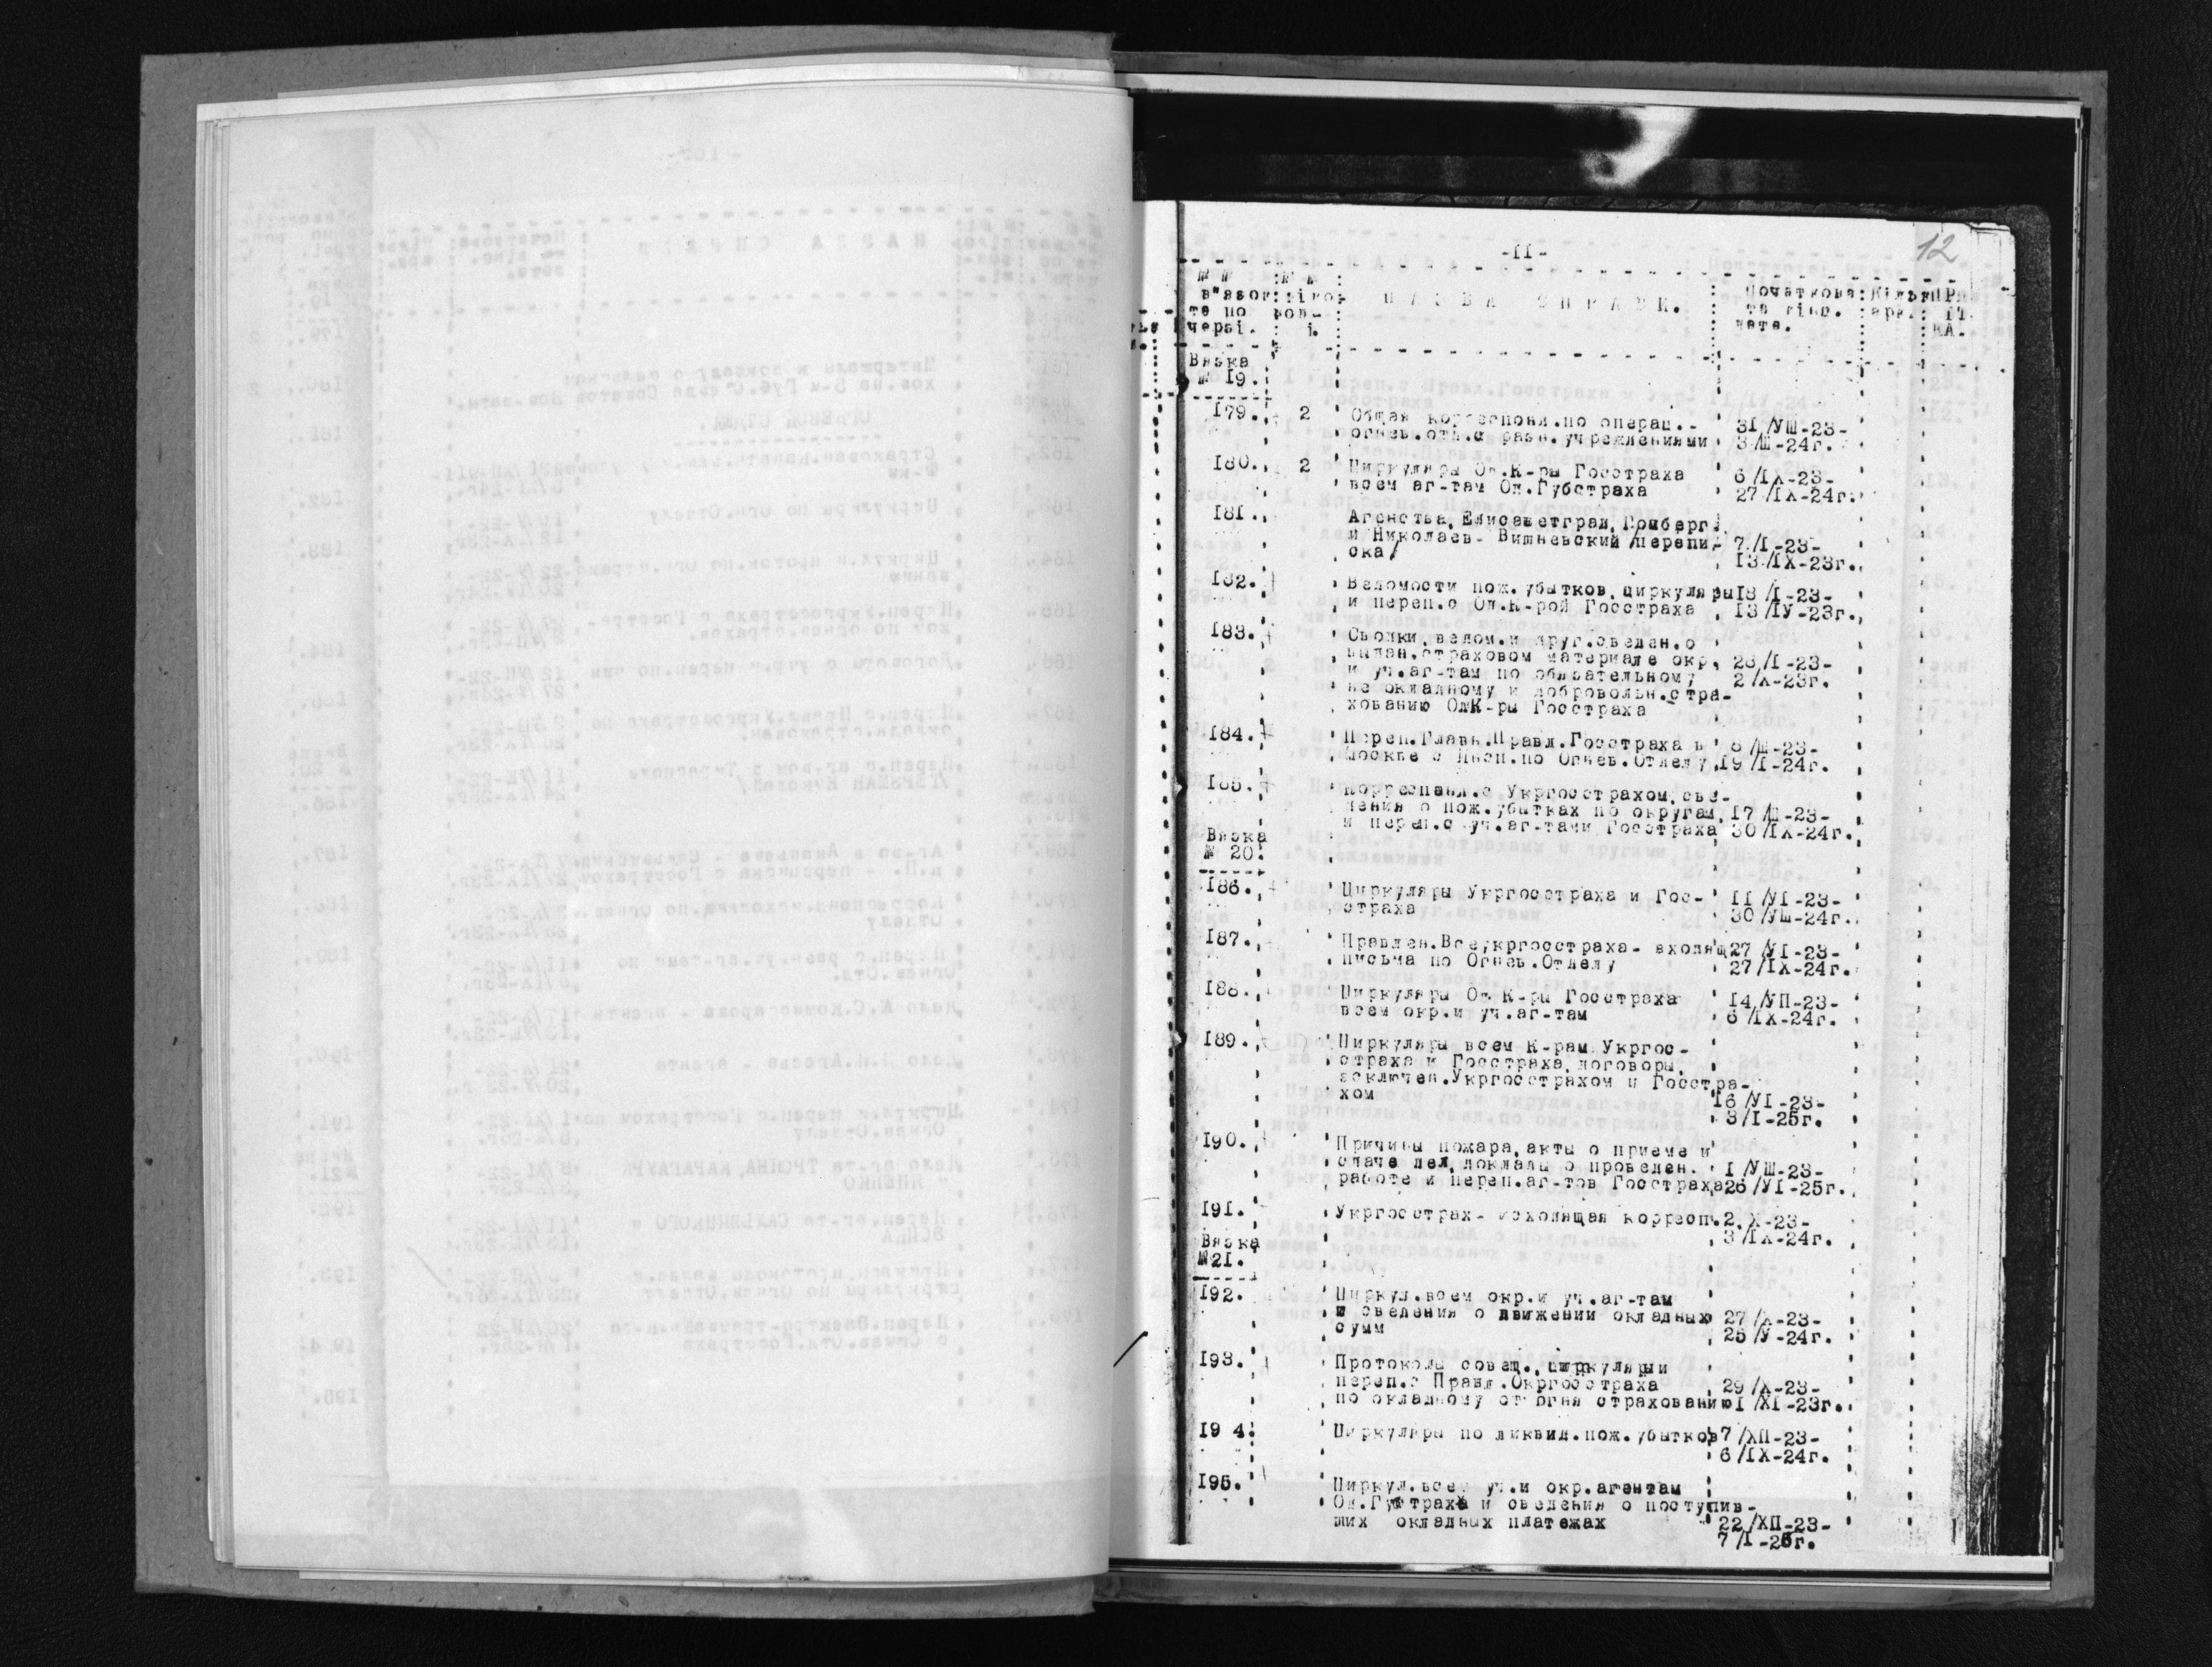 12
-II-
№ № № №
в"язок
те по
черзі.
НАЗВА СПРАВИ.
Початкова
та кінц.
дата.
Вязка
№ 19.
179. 2 Общая корреспонд.по операц.- 31/УШ-23-
огнев.отд.с разн.учреждениями 3/Ш-24г.
180. 2 Циркуляры Од.К-ры Госстраха 6/IX-23-
всем аг-там Од.Губстраха 27/IX-24г.
181. Агенства, Елисаветград, Гомберг
и Николаев- Вишневский /перепи- 7/I-23-
ска/ 13/IX-23г.
182. Ведомости пож.убытков, циркуляры 18/I-23-
и переп.с Од.К-рой Госстраха 13/IУ-23г.
183. Сводки, ведом.и друг.сведен.о
выдан.страховом материале окр. 26/I-23-
и уч.аг-там по обязательному 2/X-23г.
не окладному и добровольн.стра-
хованию Од.К-ры Госстраха
184. Переп.Главн.Правл.Госстраха в 8/Ш-23-
Москве с Инсп.по Огнев.Отделу 19/I-24г.
185. Корреспонд.с Укргосстрахом, све-
дения о пож.убытках по округам 17/Ш-23-
и переп.с уч.аг-тами Госстраха 30/IX-24г.
Вязка
№ 20.
186. Циркуляры Укргосстраха и Гос- II/УI-23-
страха 30/УШ-24г.
187. Правлен.Всеукргосстраха- входящ 27/УI-23-
письма по Огнев.Отделу 27/IX-24г.
188. Циркуляры Од.К-ры Госстраха 14/УП-23-
всем окр.и уч.аг-там 6/IX-24г.
189. Циркуляры всем К-рам Укргос-
страха и Госстраха, договоры,
заключен.Укргосстрахом и Госстра-
хом 16/УI-23-
3/I-25г.
190. Причины пожара, акты о приеме и
сдаче дел, доклады о проведен. I/УШ-23-
работе и переп.аг-тов Госстраха 26/УI-25г.
191. Укргосстрах- исходящая корресп. 2.X-23-
3/IX-24г.
Вязка
№21.
192. Циркул.всем окр.и уч.аг-там
и сведения о движении окладных 27/X-23-
сумм 25/У-24г.
193. Протоколы совещ., циркуляры и
переп.с Правл.Окргосстраха 29/X-23-
по окладному от огня страхованию I/XI-23г.
19 4. Циркуляры по ликвид.пож.убытков 7/ХП-23-
6/IX-24г.
195. Циркул.всем уч.и окр.агентам
Од.Губстраха и сведения о поступив-
ших окладных платежах 22/ХП-23-
7/I-25г.